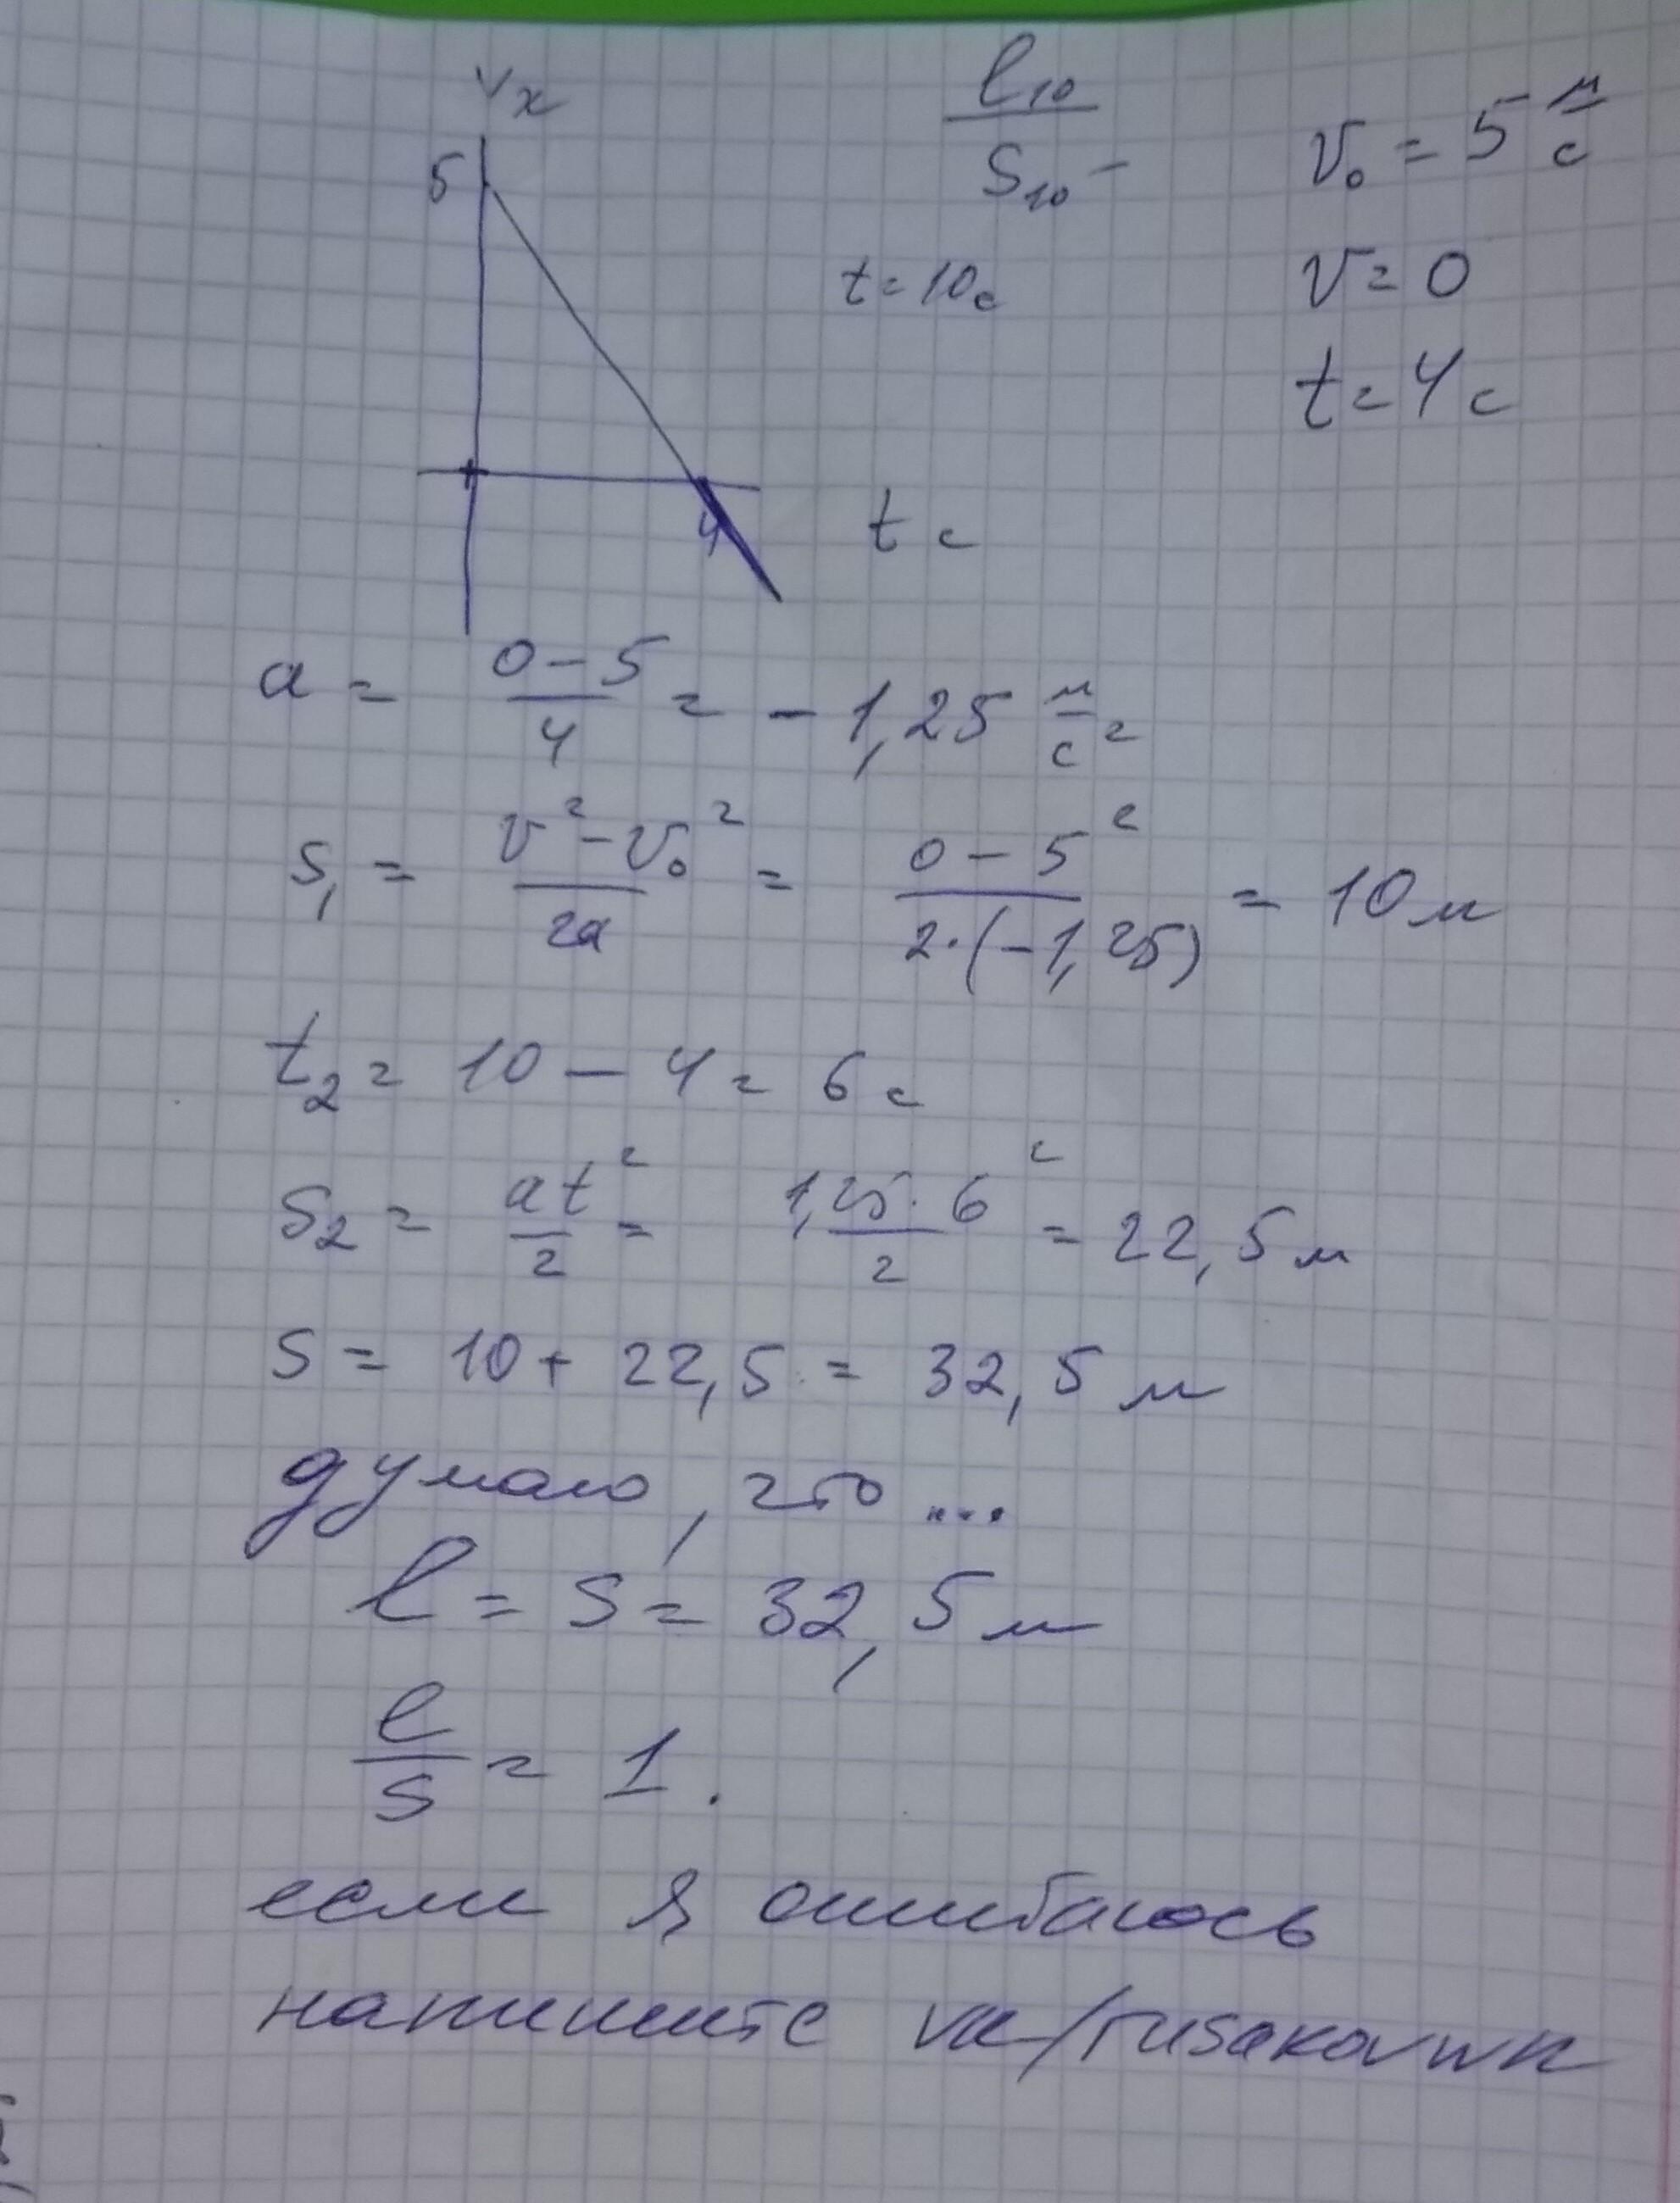 Vx
5
l₁₀/S₁₀ -
v₀ = 5 м/с
t = 10 с
v = 0
t = 4 с
4
t с
a = (0 - 5)/4 = - 1,25 м/с²
S₁ = (v² - v₀²)/2a = (0 - 5²)/(2·(-1,25)) = 10 м
t₂ = 10 - 4 = 6 с
S₂ = at²/2 = 1,25·6²/2 = 22,5 м
S = 10 + 22,5 = 32,5 м
думаю, что ...
l = S = 32,5 м
l/S = 1.
если я ошибаюсь
напишите vk/rusakovwk